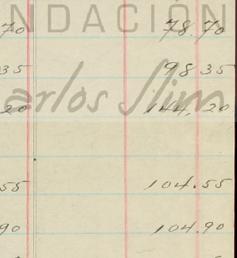 NDACIÓN
70 78.70
35 98.35
arlos Slim
20 144.20
55 104.55
90 104.90